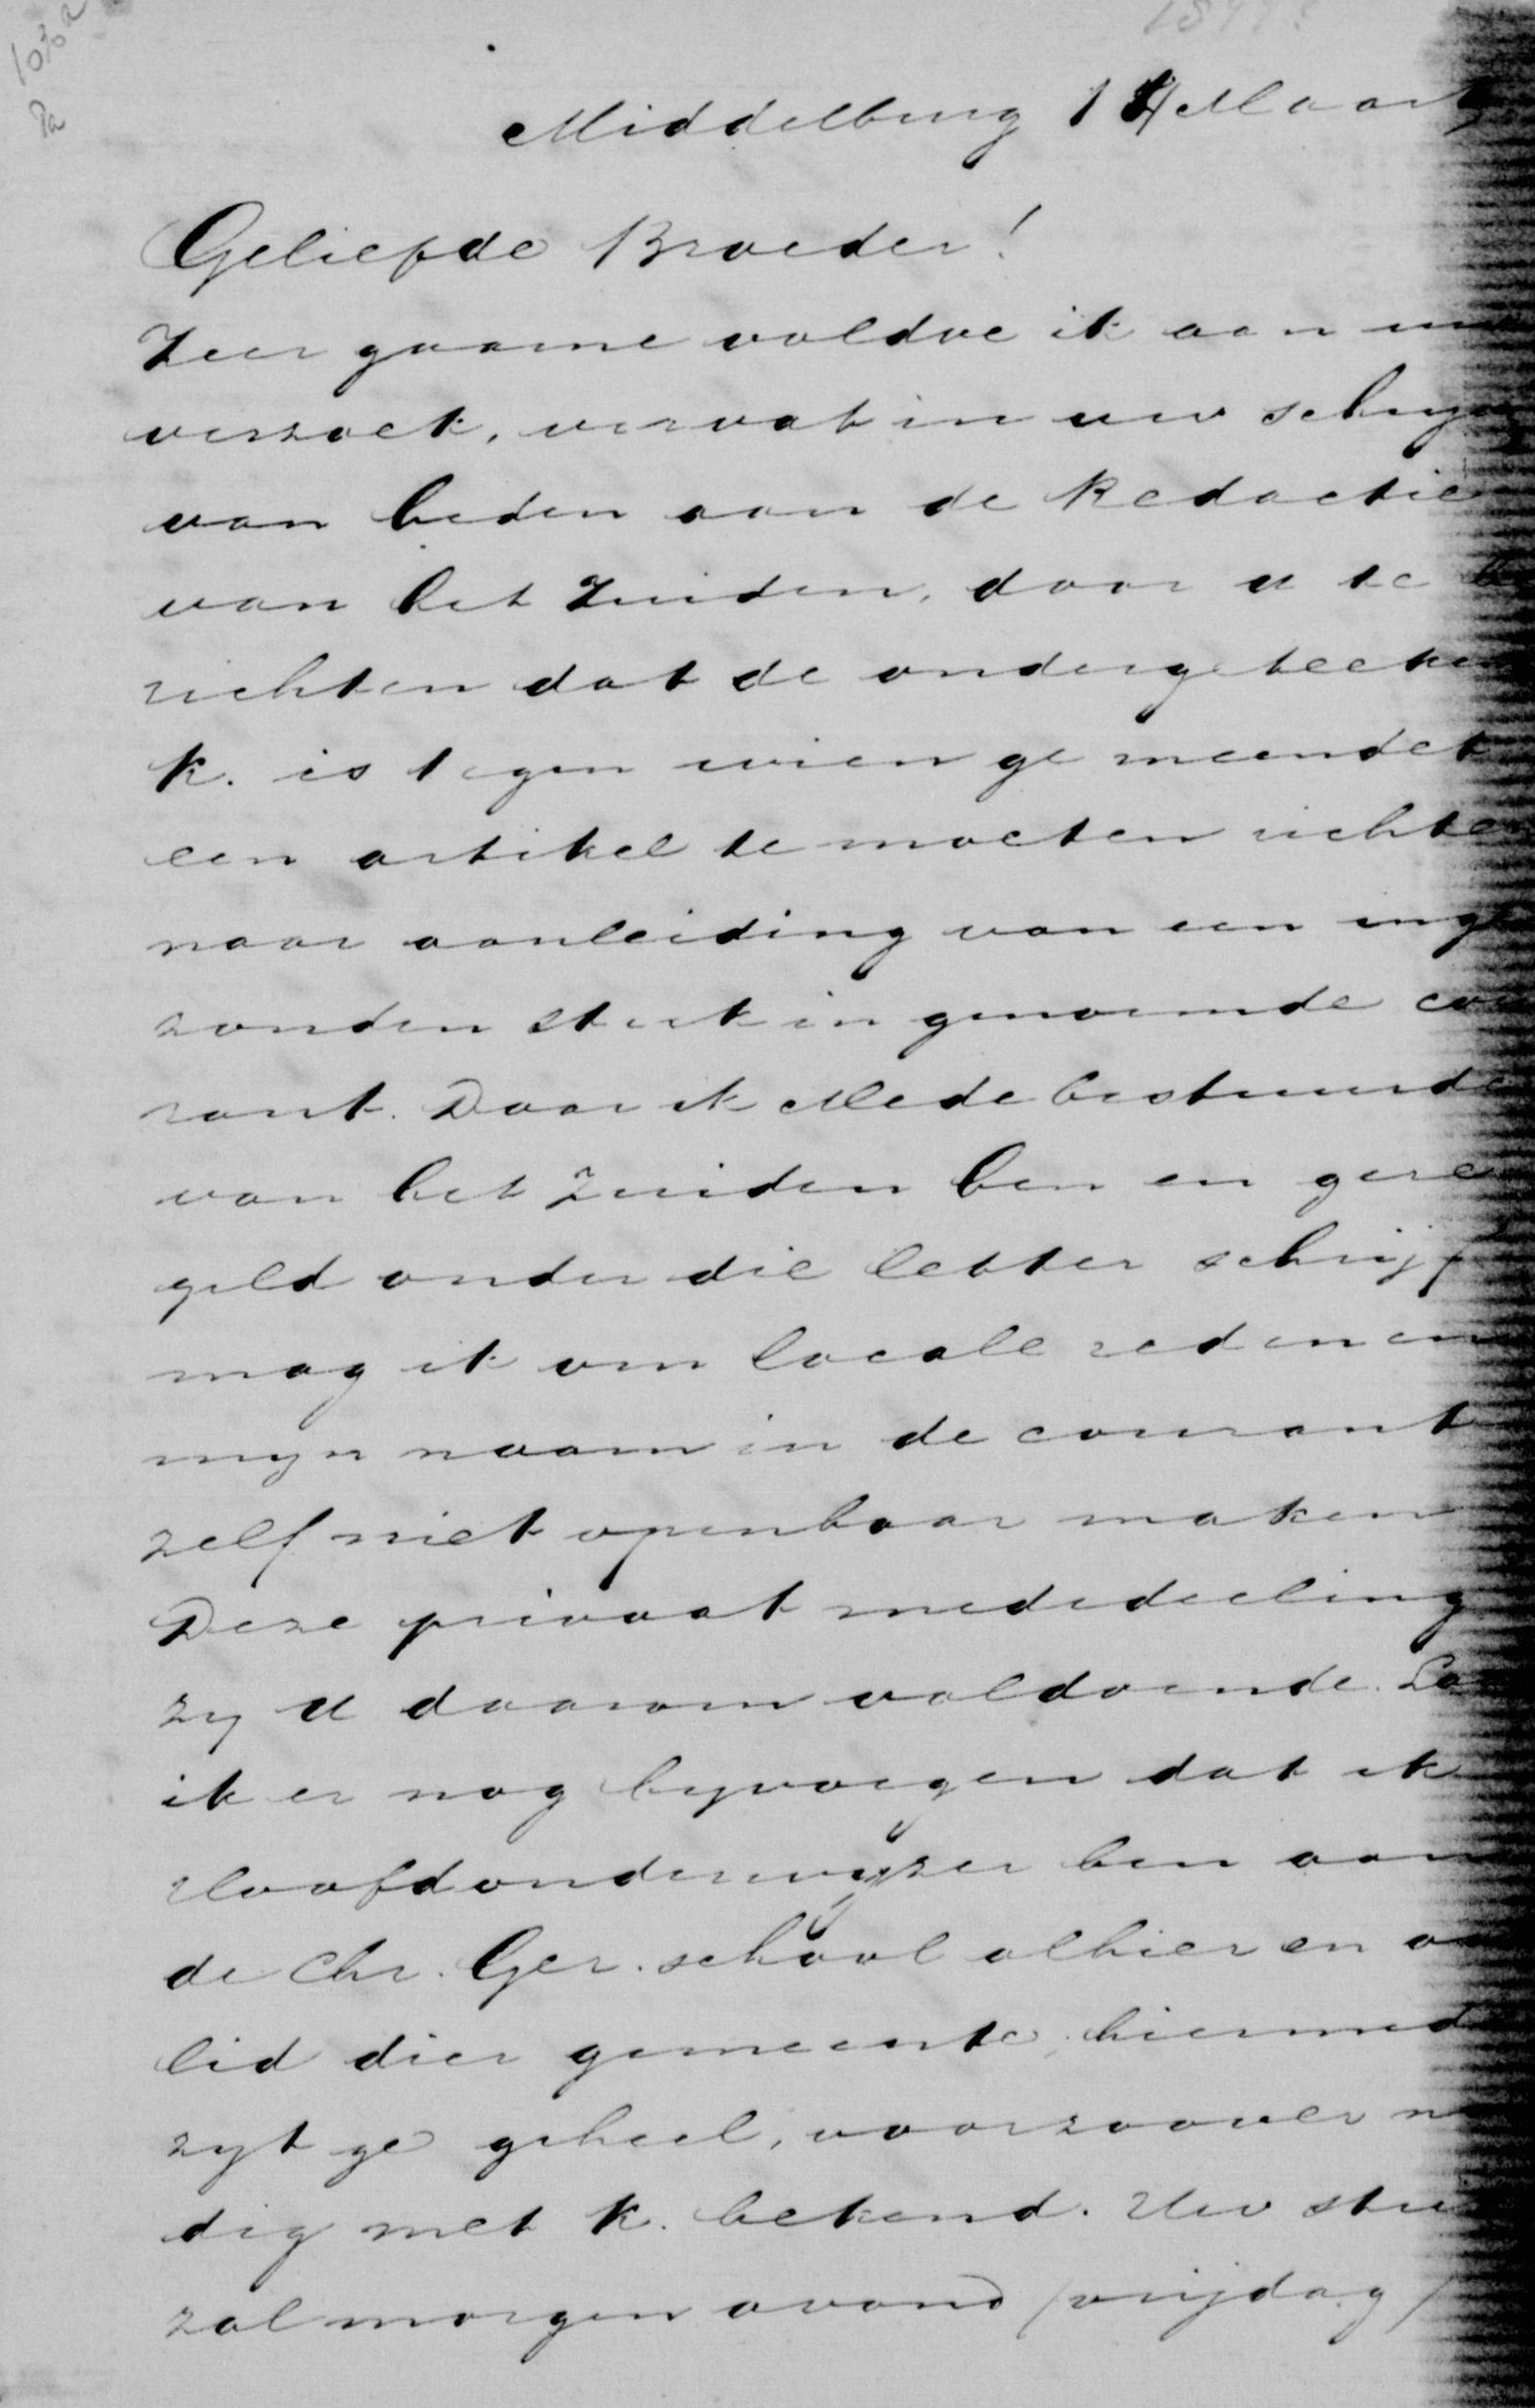 Middelburg 14 Maart
Geliefde Broeder!
Zeer gaarne voldoe ik aan uw
verzoek, vervat in uw schryv
van heden aan de Redactie
van het Zuiden, door u te be
richten dat de ondergeteeken
K. is tegen wien ge meendet
een artikel te moeten richte
naar aanleiding van een inge
zonden stuk in genoemde cou
rant. Daar ik Medebestuurde
van het Zuiden ben en gere
geld onder die letter schrijf
mag ik om locale redenen
myn naam in de courant
zelf niet openbaar maken
Deze privaat mededeeling
zy u daarom voldoende. La
ik er nog byvoegen dat ik
Hoofdonderwyzer ben aan
de Chr. Ger. school alhier en
lid dier gemeente, hiermed
zyt ge geheel, voorzoover n
dig met K. bekend. Uw stu
zal morgen avond (vrijdag)